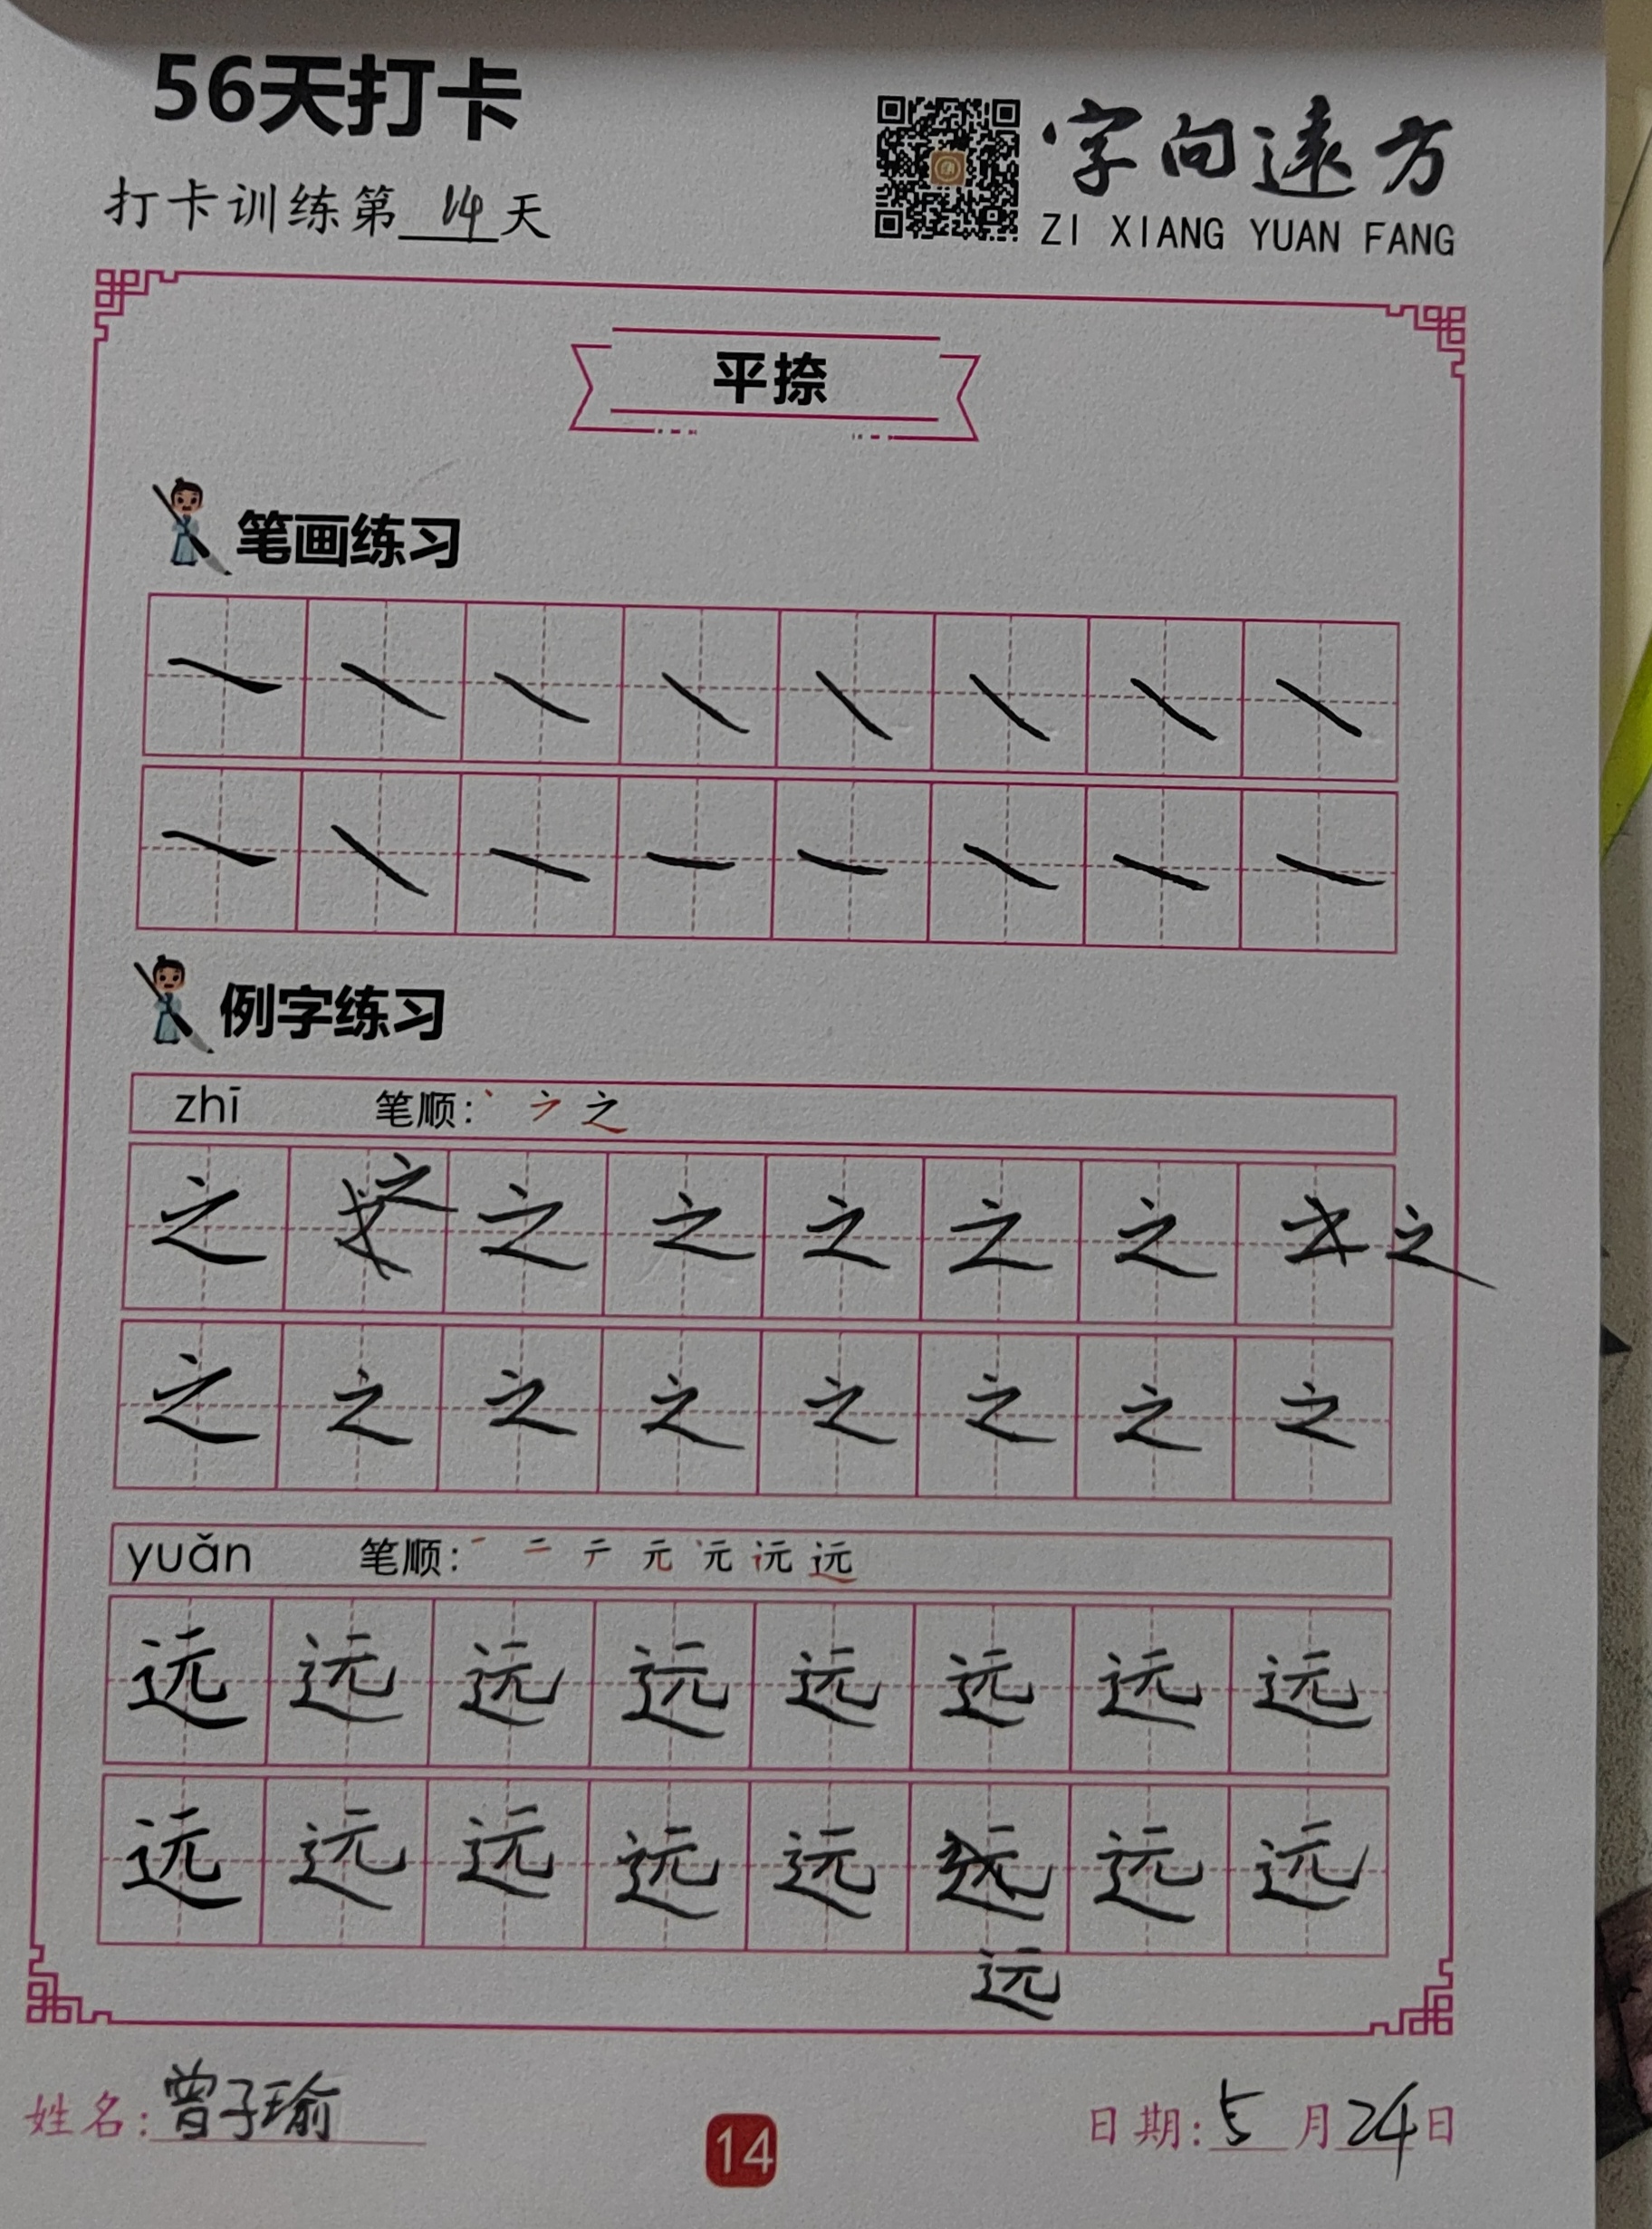 56天打卡
打卡训练第 14 天
字向远方
ZI XIANG YUAN FANG
平捺
笔画练习
例字练习
zhī 笔顺: 丶 之
之 之 之 之 之 之 之 之
之 之 之 之 之 之 之 之
yuǎn 笔顺: 一 二 元 远
远 远 远 远 远 远 远 远
远 远 远 远 远 远 远
远
姓名: 曾子瑜
14
日期: 5 月 24 日